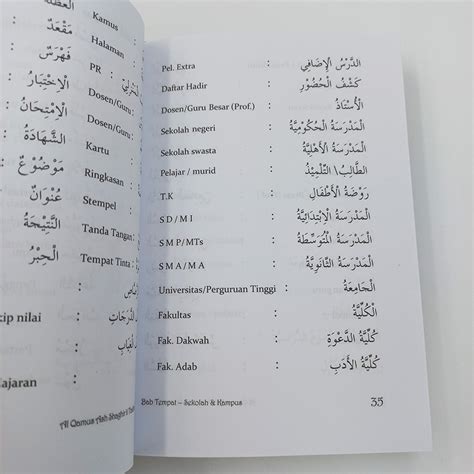 Kamus :
مَقْعَدٌ
Halaman :
فَهْرَسٌ
PR :
الْإِخْتِبَارُ
Dosen/Guru :
الْإِمْتِحَانُ
Dosen/Guru
الشَّهَادَةُ
Kartu :
مَوْضُوْعٌ
Ringkasan :
عُنْوَانٌ
Stempel :
النَّتِيْجَةُ
Tanda Tangan :
الْحِبْرُ
Tempat Tinta :
nilai
Pel. Extra : الدَّرْسُ الْإِضَافِي
Daftar Hadir : كَشْفُ الْحُضُوْرِ
Dosen/Guru Besar (Prof.) : الْأُسْتَاذُ
Sekolah negeri : الْمَدْرَسَةُ الْحُكُوْمِيَّةُ
Sekolah swasta : الْمَدْرَسَةُ الْأَهْلِيَّةُ
Pelajar / murid : الطَّالِبُ\ التِّلْمِيْذُ
T.K : رَوْضَةُ الْأَطْفَالِ
S D / M I : الْمَدْرَسَةُ الْإِبْتِدَائِيَّةُ
S M P/MTs : الْمَدْرَسَةُ الْمُتَوَسِّطَةُ
S M A / M A : الْمَدْرَسَةُ الثَّانَوِيَّةُ
Universitas/Perguruan Tinggi : الْجَامِعَةُ
Fakultas : الْكُلِّيَّةُ
Fak. Dakwah : كُلِّيَّةُ الدَّعْوَةِ
Fak. Adab : كُلِّيَّةُ الْأَدَبِ
Bab Tempat – Sekolah & Kampus 35
Al Qamus Ash Shaghir